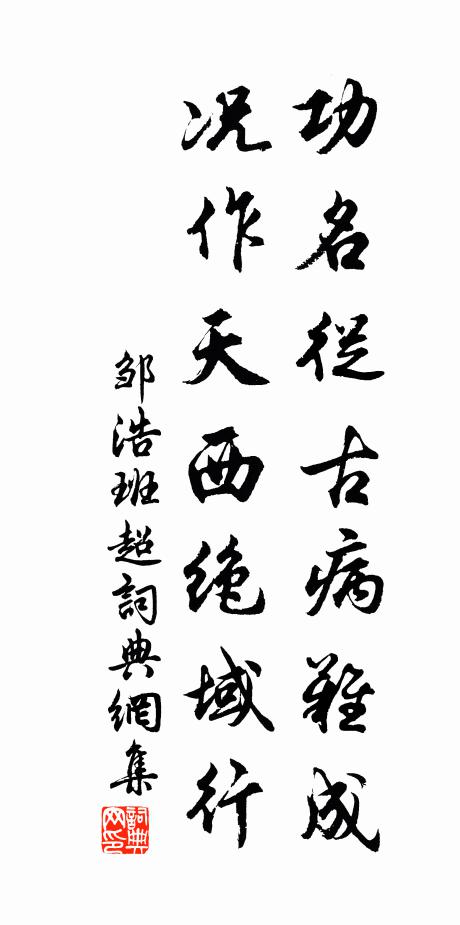 功名從古病難成
况作天西绝域行
邹浩班超詞典網集
詞典网印